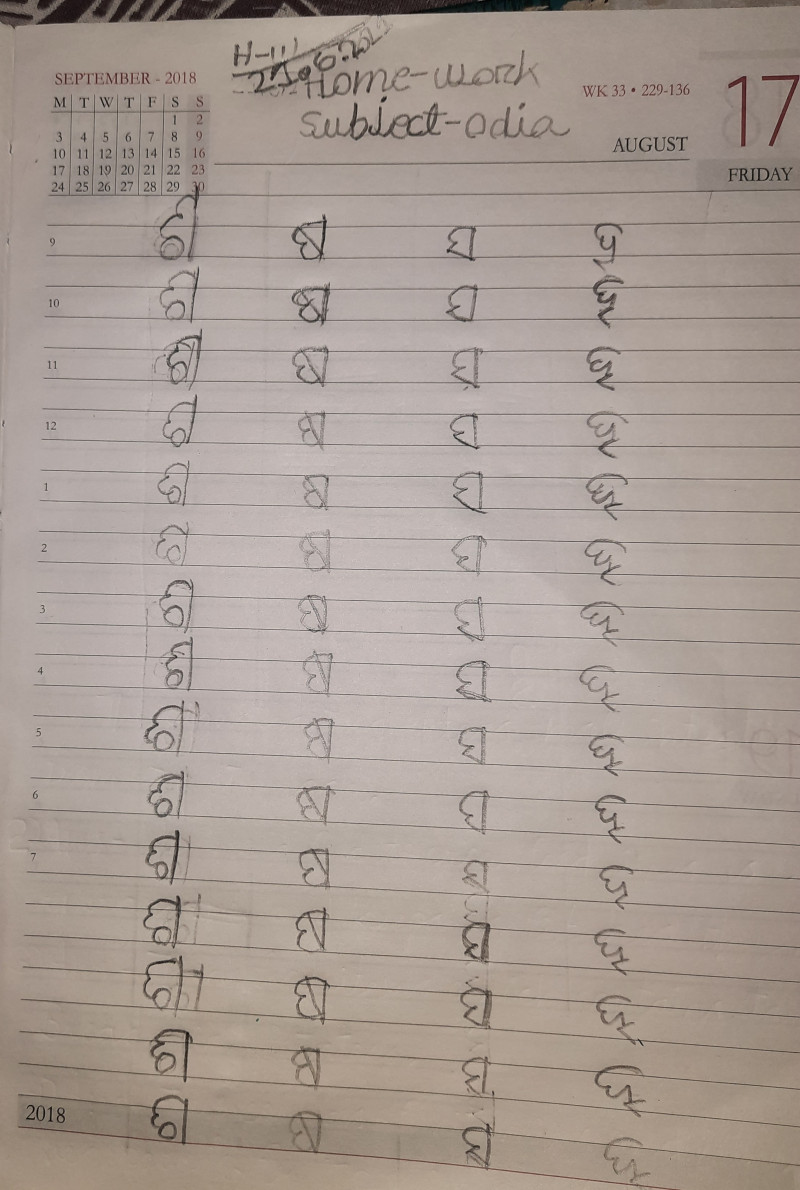 SEPTEMBER - 2018
M T W T F S S
1 2
3 4 5 6 7 8 9
10 11 12 13 14 15 16
17 18 19 20 21 22 23
24 25 26 27 28 29 30
Home-work
Subject-odia
WK 33 • 229-136
AUGUST
17
FRIDAY
9 ଶ ଷ ସ ହ
10 ଶ ଷ ସ ହ
11 ଶ ଷ ସ ହ
12 ଶ ଷ ସ ହ
1 ଶ ଷ ସ ହ
2 ଶ ଷ ସ ହ
3 ଶ ଷ ସ ହ
4 ଶ ଷ ସ ହ
5 ଶ ଷ ସ ହ
6 ଶ ଷ ସ ହ
7 ଶ ଷ ସ ହ
ଶ ଷ ସ ହ
ଶ ଷ ସ ହ
ଶ ଷ ସ ହ
2018 ଶ ଷ ସ ହ